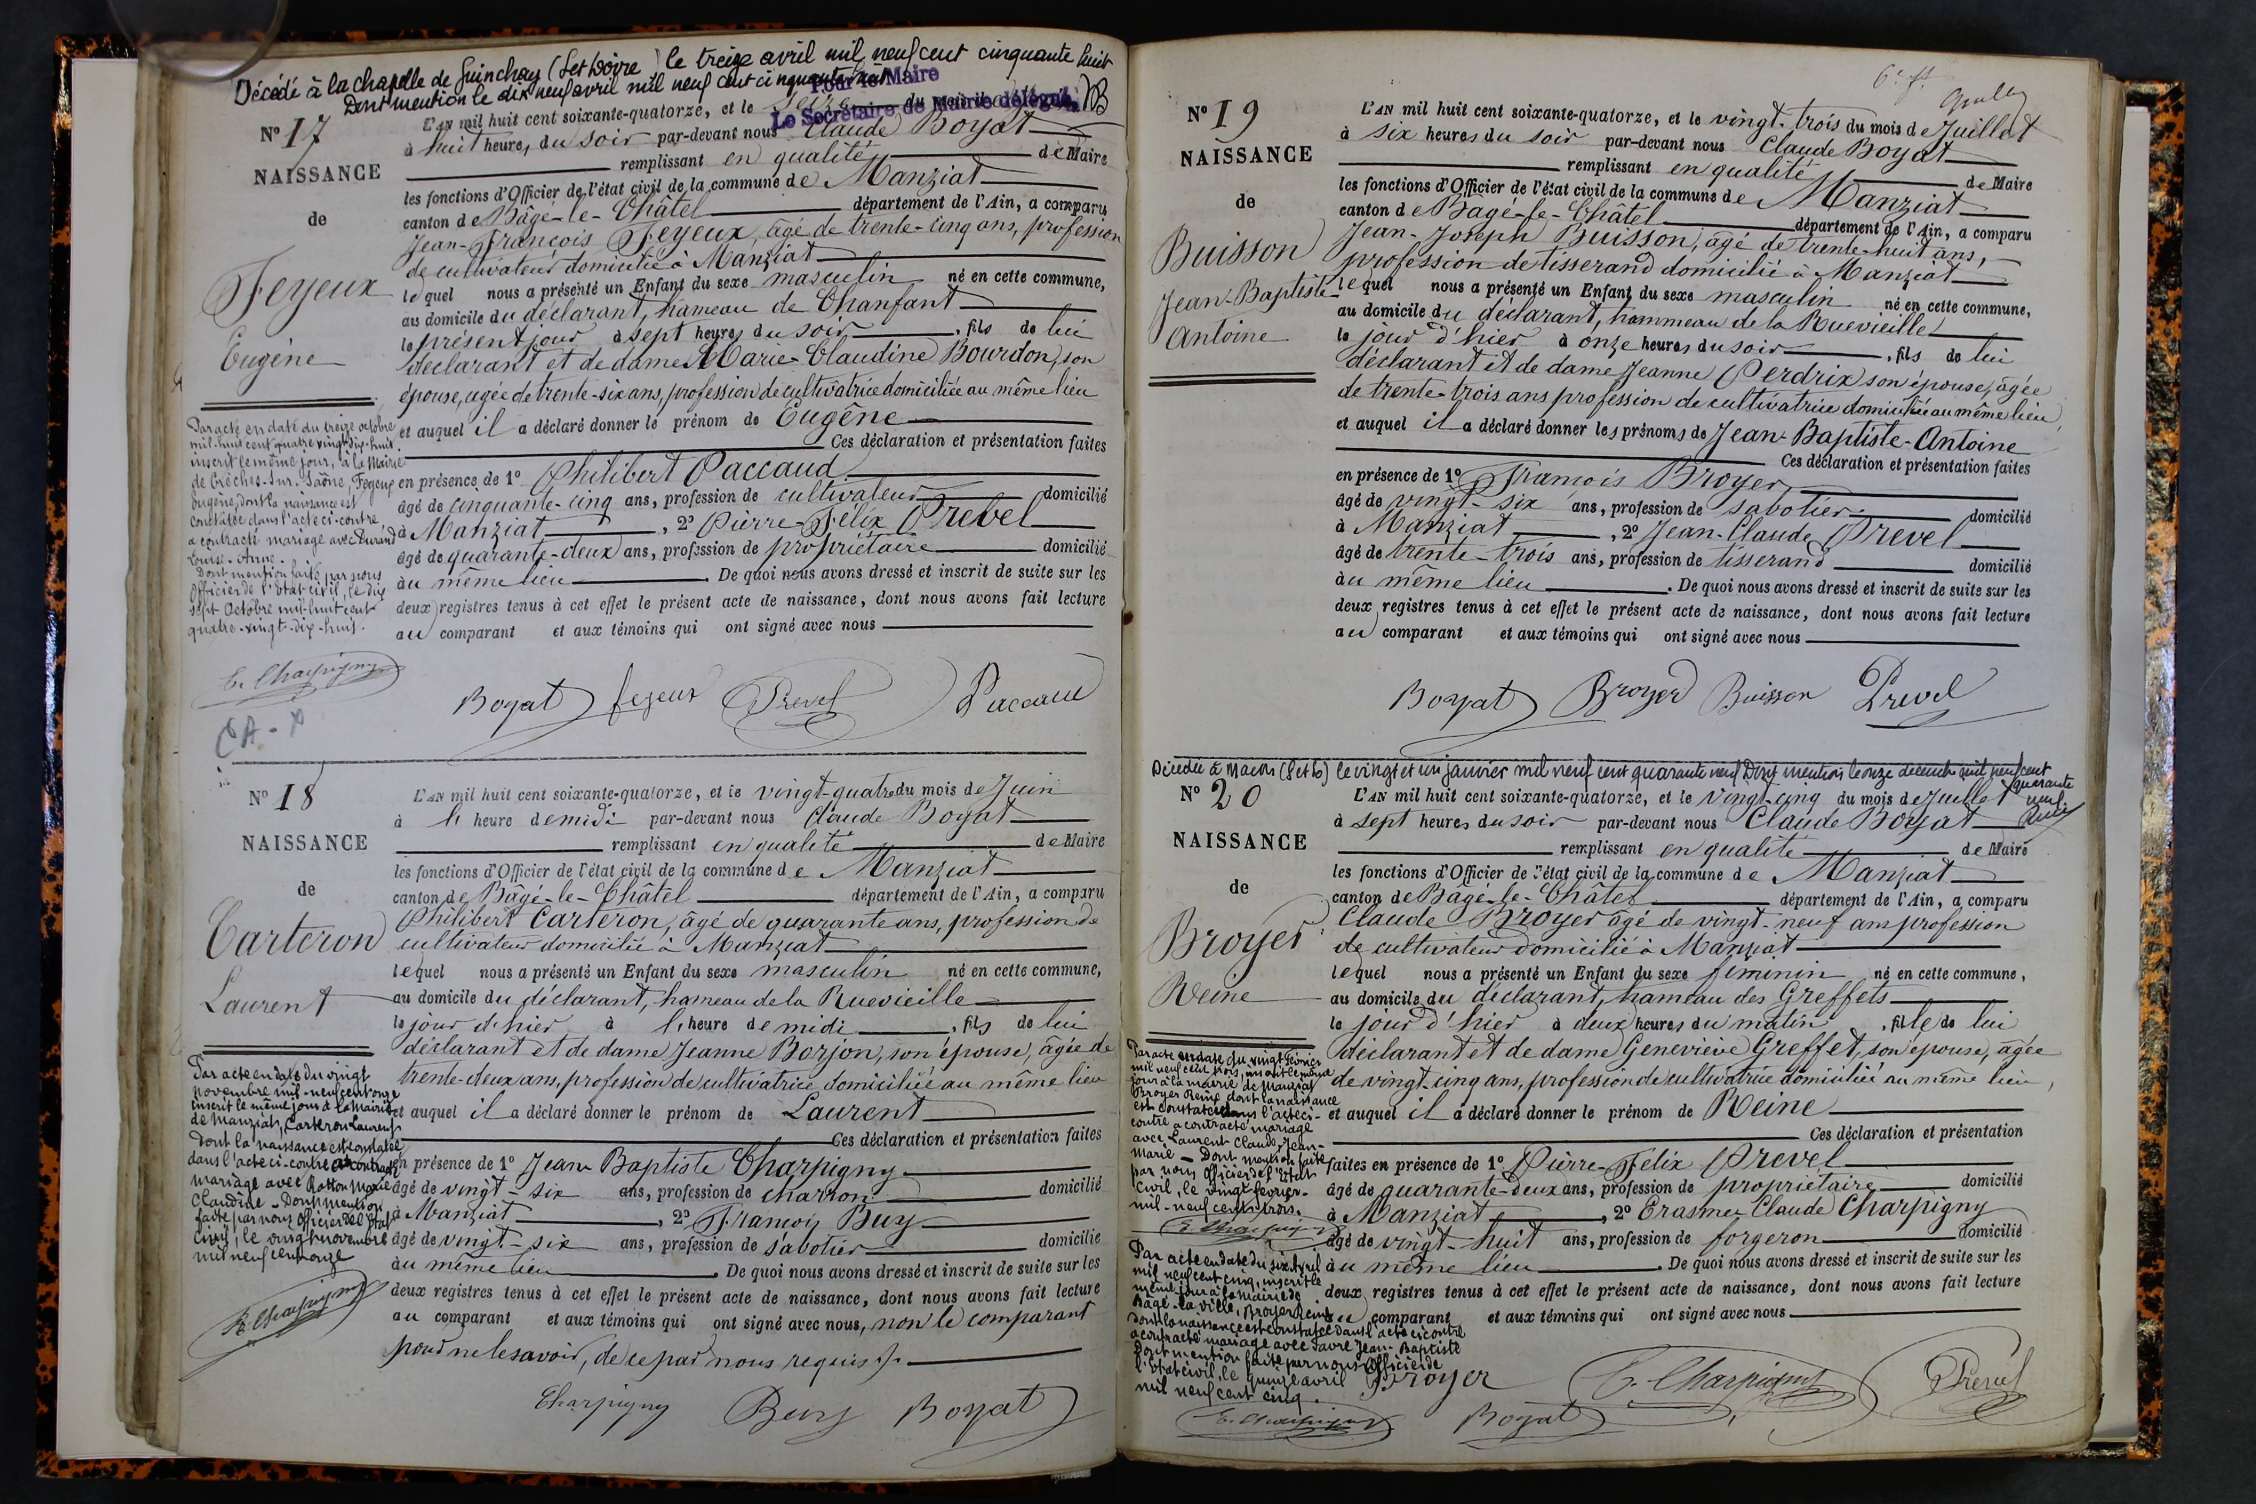 Décédé à la chapelle de Guinchay (S et Loire) le treize avril mil neuf cent cinquante huit
Dont mention le dix neuf avril mil neuf cent cinquante huit
Pour le Maire
Le Secrétaire de Mairie délégué,
N° 17
NAISSANCE
de
Feyeux
Eugène
L'AN mil huit cent soixante-quatorze, et le seize du mois de
à huit heures du soir par-devant nous Claude Boyat
remplissant en qualité de Maire
les fonctions d'Officier de l'état civil de la commune de Manziat
canton de Bâgé-le-Châtel département de l'Ain, a comparu
Jean-François Feyeux, âgé de trente-cinq ans, profession
de cultivateur domicilié à Manziat
lequel nous a présenté un Enfant du sexe masculin né en cette commune,
au domicile du déclarant, hameau de Chanfant
le présent jour à sept heures du soir, fils de lui
déclarant et de dame Marie-Claudine Bourdon, son
épouse, agée de trente-six ans, profession de cultivatrice domiciliée au même lieu
et auquel il a déclaré donner le prénom de Eugêne
Ces déclaration et présentation faites
en présence de 1° Philibert Paccaud
âgé de cinquante-cinq ans, profession de cultivateur domicilié
à Manziat, 2° Pierre-Félix Prevel
âgé de quarante-deux ans, profession de propriétaire domicilié
au même lieu. De quoi nous avons dressé et inscrit de suite sur les
deux registres tenus à cet effet le présent acte de naissance, dont nous avons fait lecture
au comparant et aux témoins qui ont signé avec nous
Par acte en date du treize octobre
mil-huit cent quatre vingt dix-huit
inscrit le même jour, à la Mairie
de Crèches-sur-Saône, Feyeux
Eugène, dont la naissance est
constatée dans l'acte ci-contre,
a contracté mariage avec Durand
Louise-Anne.
Dont mention faite par nous
Officier de l'Etat civil, le dix
sept Octobre mil-huit cent
quatre-vingt-dix-huit.
E. Charpigny
Boyat feyeux Prevel Paccaud
CA - x
N° 18
NAISSANCE
de
Carteron
Laurent
L'AN mil huit cent soixante-quatorze, et le vingt-quatre du mois de Juin
à l' heure de midi par-devant nous Claude Boyat
remplissant en qualité de Maire
les fonctions d'Officier de l'état civil de la commune de Manziat
canton de Bâgé-le-Châtel département de l'Ain, a comparu
Philibert Carteron, âgé de quarante ans, profession de
cultivateur domicilié à Manziat
lequel nous a présenté un Enfant du sexe masculin né en cette commune,
au domicile du déclarant, hameau de la Ruevieille
le jour d'hier à l' heure de midi, fils de lui
déclarant et de dame Jeanne Borjon, son épouse, âgée de
trente-deux ans, profession de cultivatrice domiciliée au même lieu
et auquel il a déclaré donner le prénom de Laurent
Ces déclaration et présentation faites
en présence de 1° Jean Baptiste Charpigny
âgé de vingt-six ans, profession de charron domicilié
à Manziat, 2° François Buy
âgé de vingt-six ans, profession de sabotier domicilié
au même lieu. De quoi nous avons dressé et inscrit de suite sur les
deux registres tenus à cet effet le présent acte de naissance, dont nous avons fait lecture
au comparant et aux témoins qui ont signé avec nous, non le comparant
pour ne le savoir, de ce par nous requis.
Par acte en date du vingt
novembre mil-neuf cent onze
inscrit le même jour à la Mairie
de Manziat, Carteron Laurent
dont la naissance est constatée
dans l'acte ci-contre a contracté
mariage avec Rotton Marie
Claudine. Dont mention
faite par nous officier de l'Etat
civil, le vingt novembre
mil neuf cent onze
E. Charpigny
Charpigny Buy Boyat
6e ft
N° 19
NAISSANCE
de
Buisson
Jean-Baptiste
Antoine
L'AN mil huit cent soixante-quatorze, et le vingt-trois du mois de Juillet
à six heures du soir par-devant nous Claude Boyat
remplissant en qualité de Maire
les fonctions d'Officier de l'état civil de la commune de Manziat
canton de Bagé-le-Châtel département de l'Ain, a comparu
Jean-Joseph Buisson, âgé de trente-huit ans,
profession de tisserand domicilié à Manziat
lequel nous a présenté un Enfant du sexe masculin né en cette commune,
au domicile du déclarant, hammeau de la Ruevieille
le jour d'hier à onze heures du soir, fils de lui
déclarant et de dame Jeanne Perdrix son épouse, âgée
de trente-trois ans profession de cultivatrice domiciliée au même lieu,
et auquel il a déclaré donner les prénoms de Jean-Baptiste-Antoine
Ces déclaration et présentation faites
en présence de 1° François Broyer
âgé de vingt-six ans, profession de sabotier domicilié
à Manziat, 2° Jean-Claude Prevel
âgé de trente-trois ans, profession de tisserand domicilié
au même lieu. De quoi nous avons dressé et inscrit de suite sur les
deux registres tenus à cet effet le présent acte de naissance, dont nous avons fait lecture
au comparant et aux témoins qui ont signé avec nous
Boyat Broyer Buisson Prevel
Décédée à Macon (S et L) le vingt et un janvier mil neuf cent quarante neuf Dont mention le onze decembre mil neuf cent
quarante
neuf
N° 20
NAISSANCE
de
Broyer
Reine
L'AN mil huit cent soixante-quatorze, et le vingt-cinq du mois de Juillet
à sept heures du soir par-devant nous Claude Boyat
remplissant en qualité de Maire
les fonctions d'Officier de l'état civil de la commune de Manziat
canton de Bagé-le-Châtel département de l'Ain, a comparu
Claude Broyer âgé de vingt-neuf ans profession
de cultivateur domicilié à Manziat
lequel nous a présenté un Enfant du sexe féminin né en cette commune,
au domicile du déclarant, hameau des Greffets
le jour d'hier à deux heures du matin, fille de lui
déclarant et de dame Geneviève Greffet, son épouse, âgée
de vingt-cinq ans, profession de cultivatrice domiciliée au même lieu,
et auquel il a déclaré donner le prénom de Reine
Ces déclaration et présentation
faites en présence de 1° Pierre-Félix Prevel
âgé de quarante-deux ans, profession de propriétaire domicilié
à Manziat, 2° Erasme Claude Charpigny
âgé de vingt-huit ans, profession de forgeron domicilié
au même lieu. De quoi nous avons dressé et inscrit de suite sur les
deux registres tenus à cet effet le présent acte de naissance, dont nous avons fait lecture
au comparant et aux témoins qui ont signé avec nous
Par acte en date du vingt février
mil neuf cent trois, inscrit le même
jour à la mairie de Manziat
Broyer Reine dont la naissance
est constatée dans l'acte ci-
contre a contracté mariage
avec Laurent Claude, Jean-
Marie - Dont mention faite
par nous Officier de l'Etat
civil, le vingt février
mil-neuf cent trois.
E. Charpigny
Par acte en date du six Avril
mil neuf cent cinq, inscrit le
même jour à la Mairie de
Bagé-la-ville, Broyer Reine
dont la naissance est constatée dans l'acte ci contre
a contracté mariage avec Favre Jean-Baptiste
Dont mention faite par nous Officier de
l'Etat civil, le quinze avril
mil neuf cent cinq.
E. Charpigny
Broyer E. Charpigny Prevel
Boyat